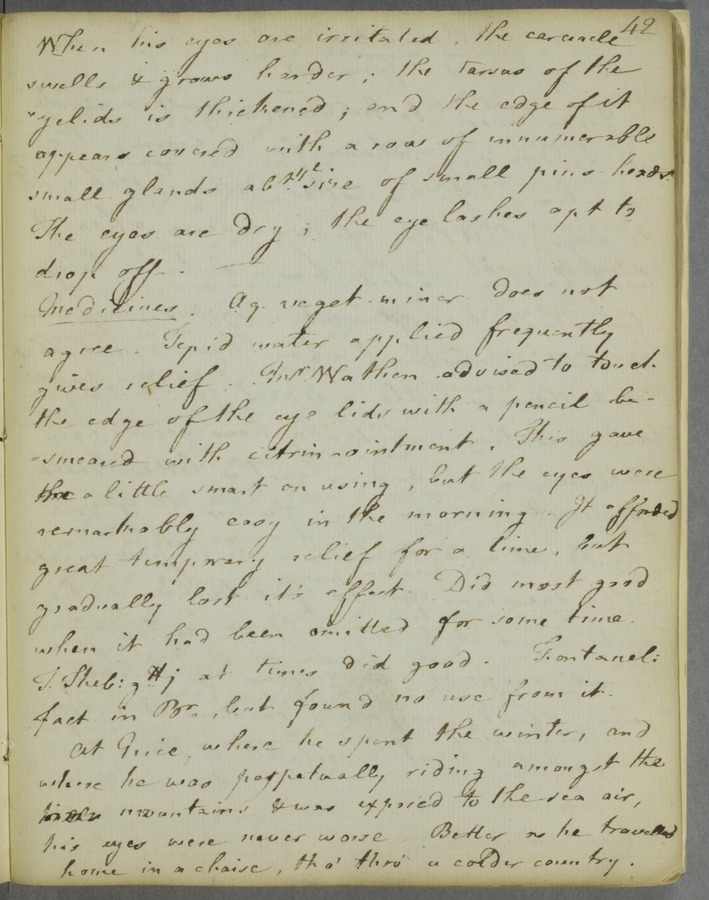 42
When his eyes are irritated, the caruncle
swells & grows harder; the tarsus of the
eyelids is thickened; and the edge of it
appears covered with a row of innumerable
small glands abt. ye size of small pins heads.
The eyes are dry; the eye lashes apt to
drop off. —
Medicines. Aq. veget. miner. does not
agree. Tepid water applied frequently
gives relief. Mr. Wathen advised to touch
the edge of the eye lids with a pencil be-
-smeared with citrin-ointment. This gave
a little smart on using, but the eyes were
remarkably easy in the morning. It afforded
great temporary relief for a time, but
gradually lost it's effect. Did most good
when it had been omitted for some time.
T. Theb: g at times did good. Fontanel:
fact in Br., but found no use from it.
At Nice, where he spent the winter, and
where he was perpetually riding amongst the
mountains & was exposed to the sea air,
his eyes were never worse. Better as he travelled
home in a chaise, tho' thro' a colder country.